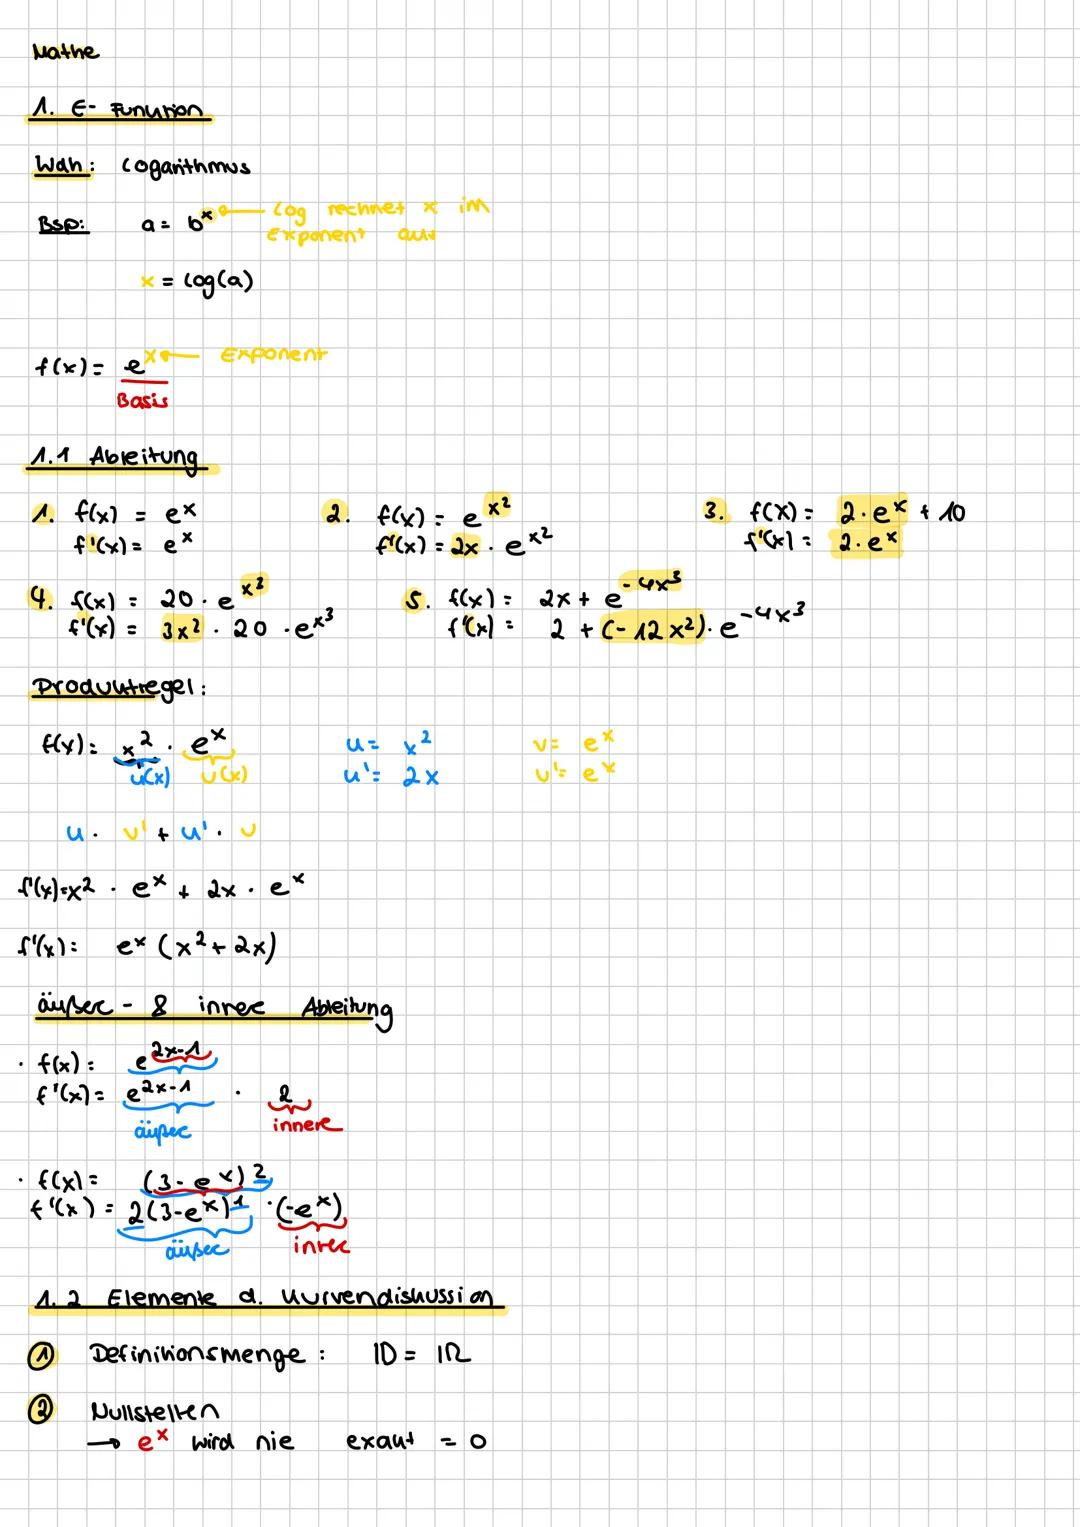 Mathe
1. E- Funktion
Wdh: Logarithmus
Bsp: a = b^x ← Log rechnet x im
Exponent aus
x = log(a)
f(x) = e^x ← Exponent
Basis
1.1 Ableitung
1. f(x) = e^x 2. f(x) = e^x² 3. f(x) = 2·e^x + 10
f'(x) = e^x f'(x) = 2x · e^x² f'(x) = 2·e^x
4. f(x) = 20 · e^x³ 5. f(x) = 2x + e^-4x³
f'(x) = 3x² · 20 · e^x³ f'(x) = 2 + (-12x²) · e^-4x³
Produktregel:
f(x) = x² · e^x u = x² v = e^x
u(x) v(x) u' = 2x v' = e^x
u · v' + u' · v
f'(x) = x² · e^x + 2x · e^x
f'(x) = e^x (x² + 2x)
äußere - & innere Ableitung
· f(x) = e^2x-1
f'(x) = e^2x-1 · 2
äußere innere
· f(x) = (3 - e^x)²
f'(x) = 2(3-e^x)¹ · (-e^x)
äußere innere
1.2 Elemente d. Kurvendiskussion
① Definitionsmenge : ID = IR
② Nullstellen
→ e^x wird nie exakt = 0